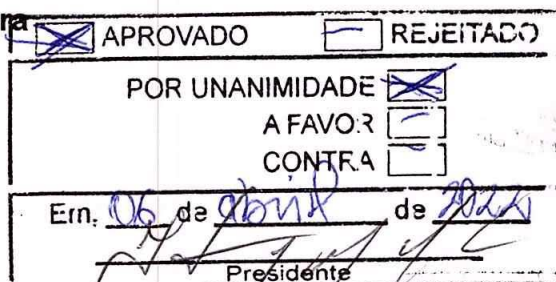 ra
APROVADO REJEITADO
POR UNANIMIDADE
A FAVOR
CONTRA
Em, 06 de abril de 2022
Presidente